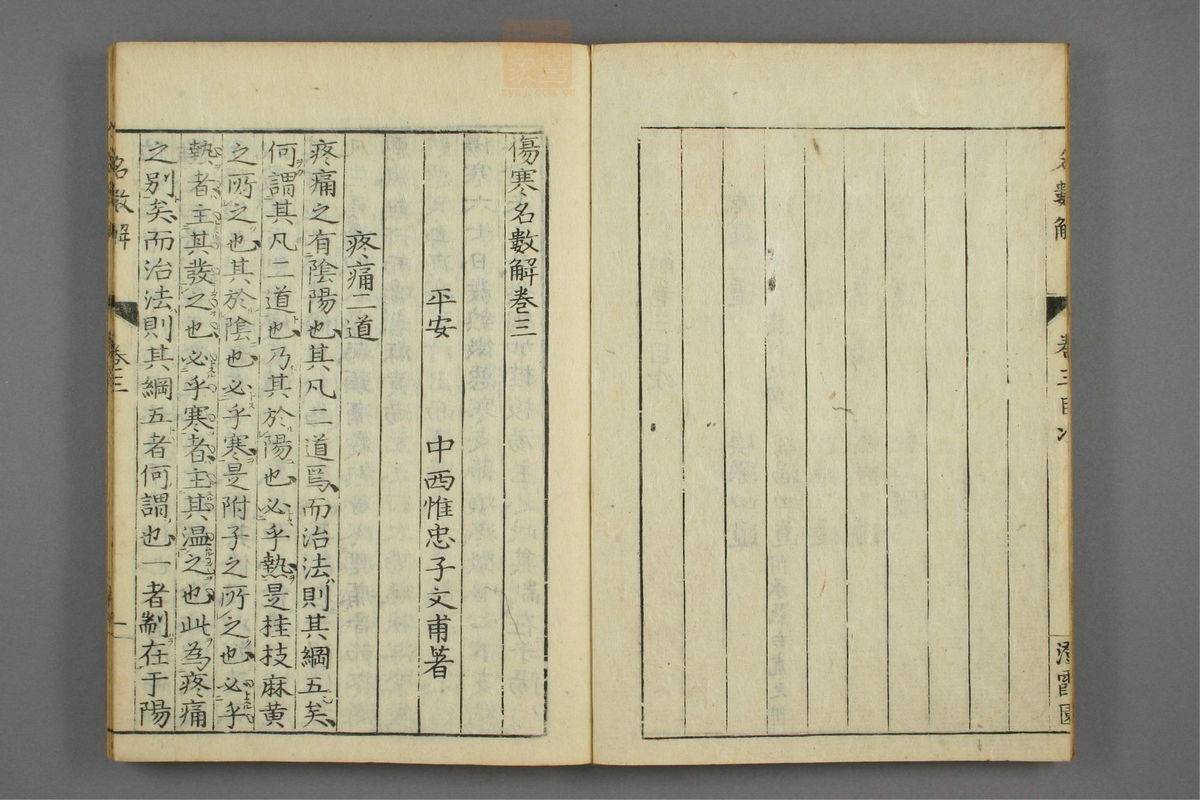 名數解
卷三目次
傷寒名數解卷三
平安 中西惟忠子文甫著
疼痛二道
疼痛之有陰陽也其凡二道焉而治法則其綱五矣
何謂其凡二道也乃其於陽也必乎熱是桂技麻黄
之所之也其於陰也必乎寒是附子之所之也必乎
熱者主其發之也必乎寒者主其温之也此為疼痛
之別矣而治法則其綱五者何謂也一者制在于陽
名數解
卷三
一